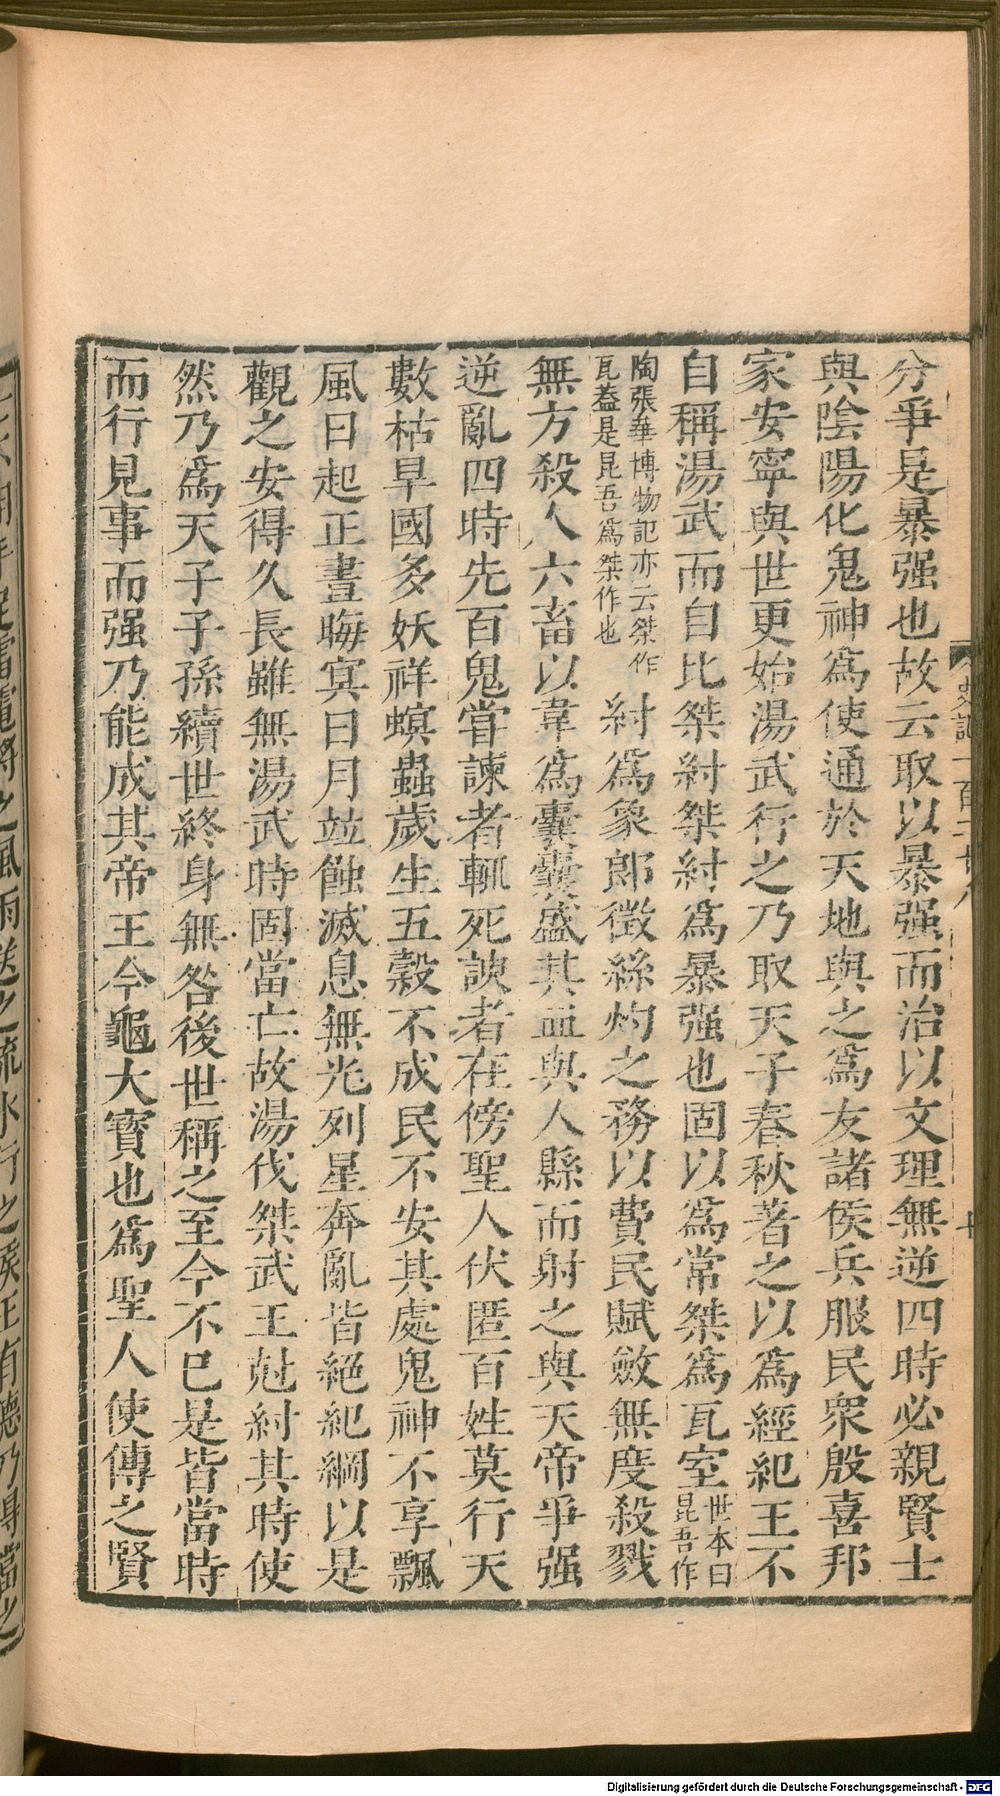 分爭是暴强也故云取以暴强而治以文理無逆四時必親賢士
與陰陽化鬼神爲使通於天地與之爲友諸侯兵服民衆殷喜邦
家安寧與世更始湯武行之乃取天子春秋著之以爲經紀王不
自稱湯武而自比桀紂桀紂爲暴强也固以爲常桀爲瓦室世本曰昆吾作
陶張華博物記亦云桀作瓦葢是昆吾爲桀作也紂爲象郎徵絲灼之務以費民賦斂無度殺戮
無方殺人六畜以韋爲囊囊盛其血與人縣而射之與天帝爭强
逆亂四時先百鬼嘗諫者輒死諛者在傍聖人伏匿百姓莫行天
數枯旱國多妖祥螟蟲歲生五穀不成民不安其處鬼神不享飄
風日起正晝晦冥日月竝蝕滅息無光列星奔亂皆絕紀綱以是
觀之安得久長雖無湯武時固當亡故湯伐桀武王尅紂其時使
然乃爲天子子孫續世終身無咎後世稱之至今不已是皆當時
而行見事而强乃能成其帝王今龜大寶也爲聖人使傳之賢
雷電將之風雨送之流水行之侯王有德乃得當之
Digitalisierung gefördert durch die Deutsche Forschungsgemeinschaft - DFG